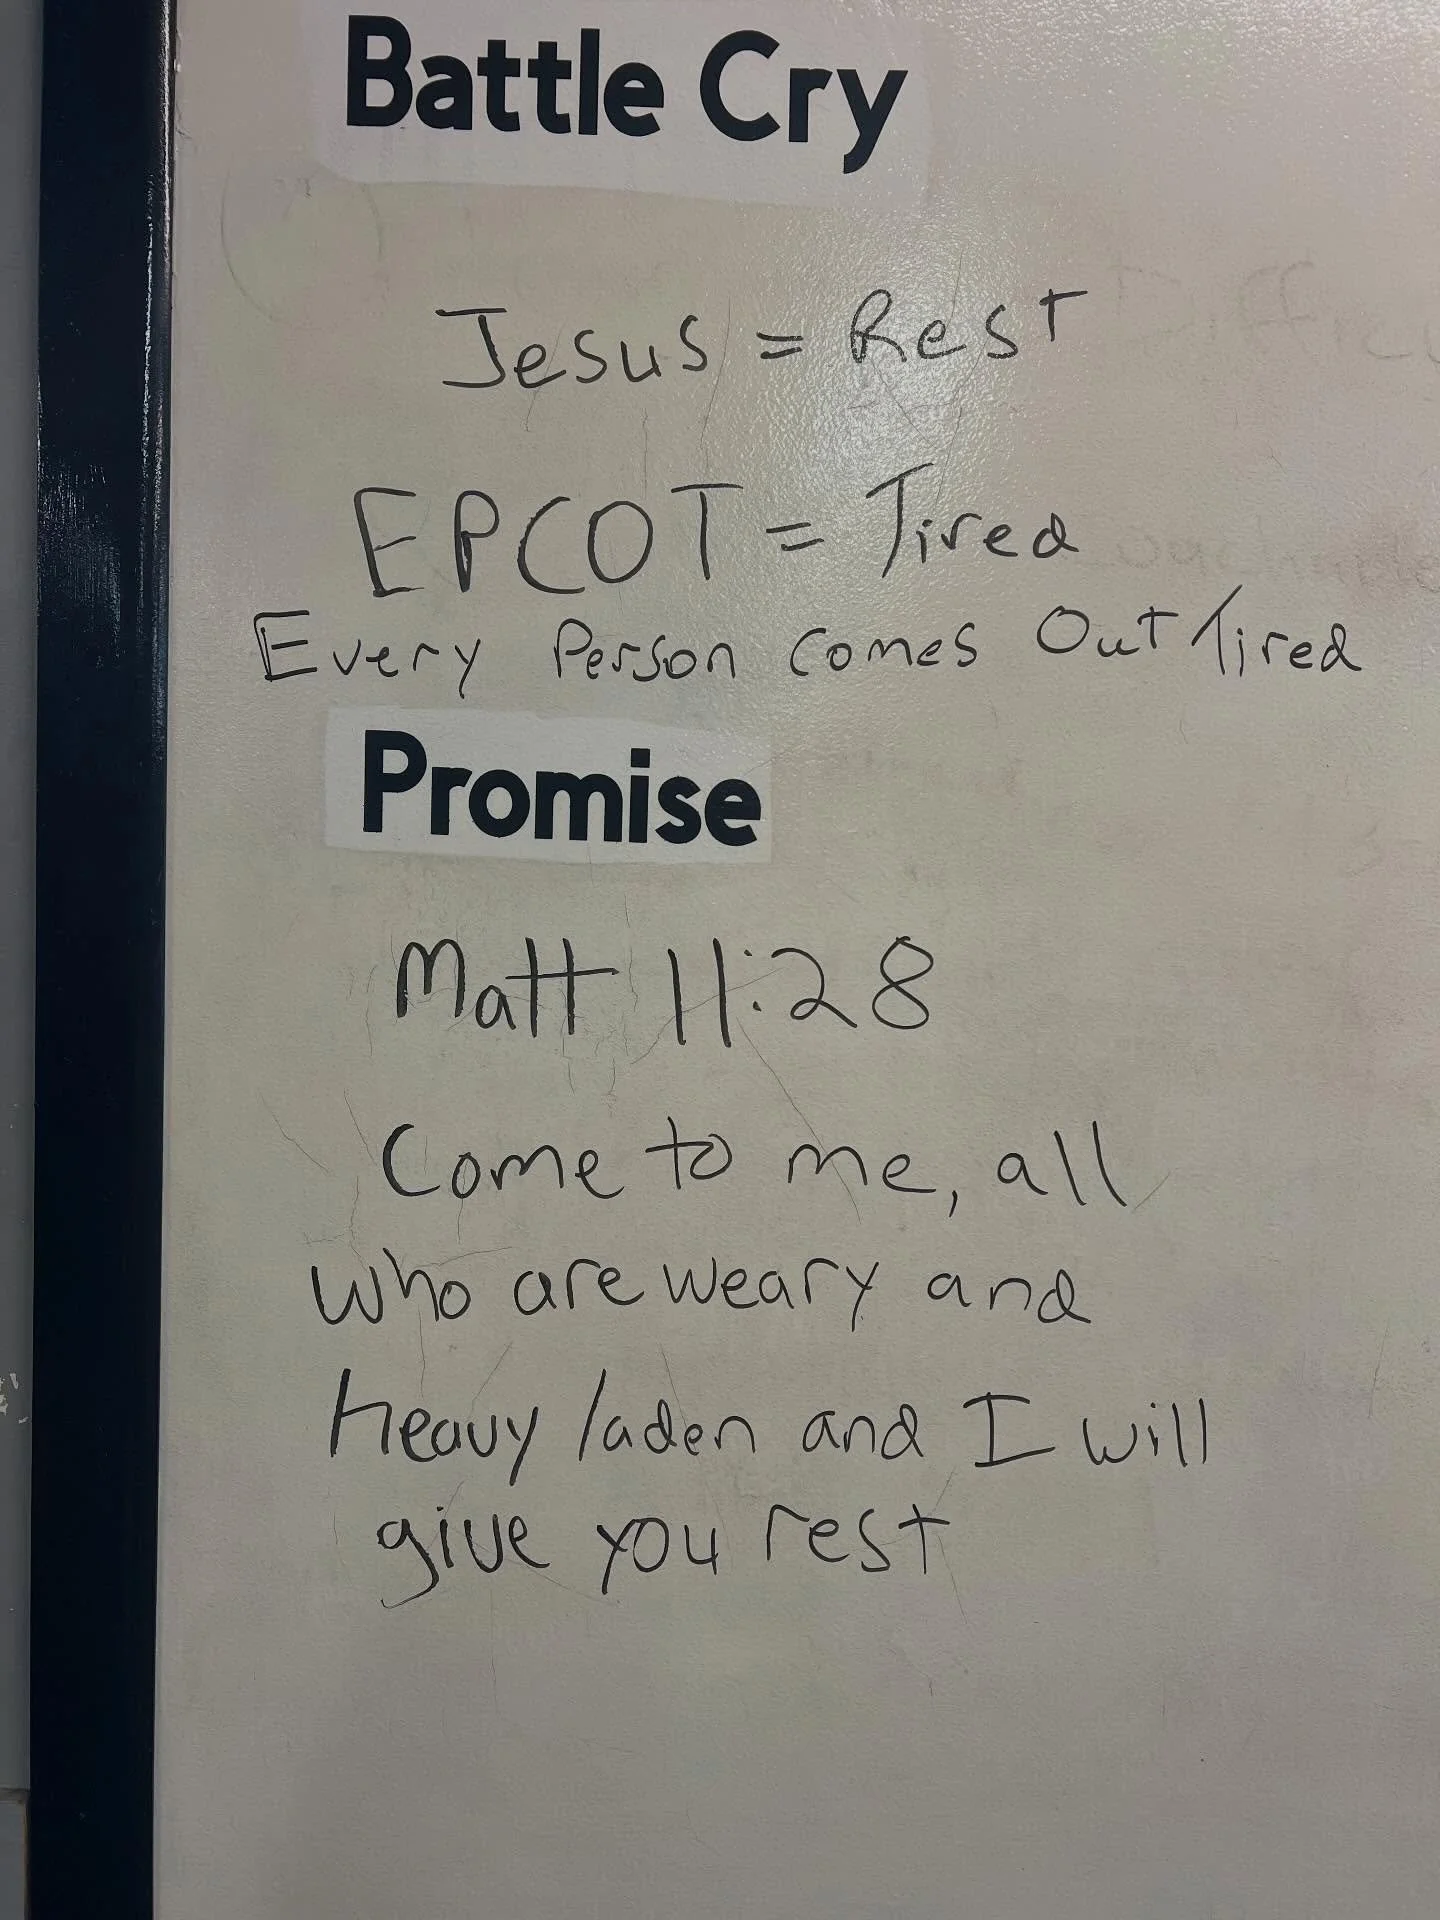 Battle Cry
Jesus = Rest
EPCOT = Tired
Every Person Comes Out Tired
Promise
Matt 11:28
Come to me, all
who are weary and
heavy laden and I will
give you rest